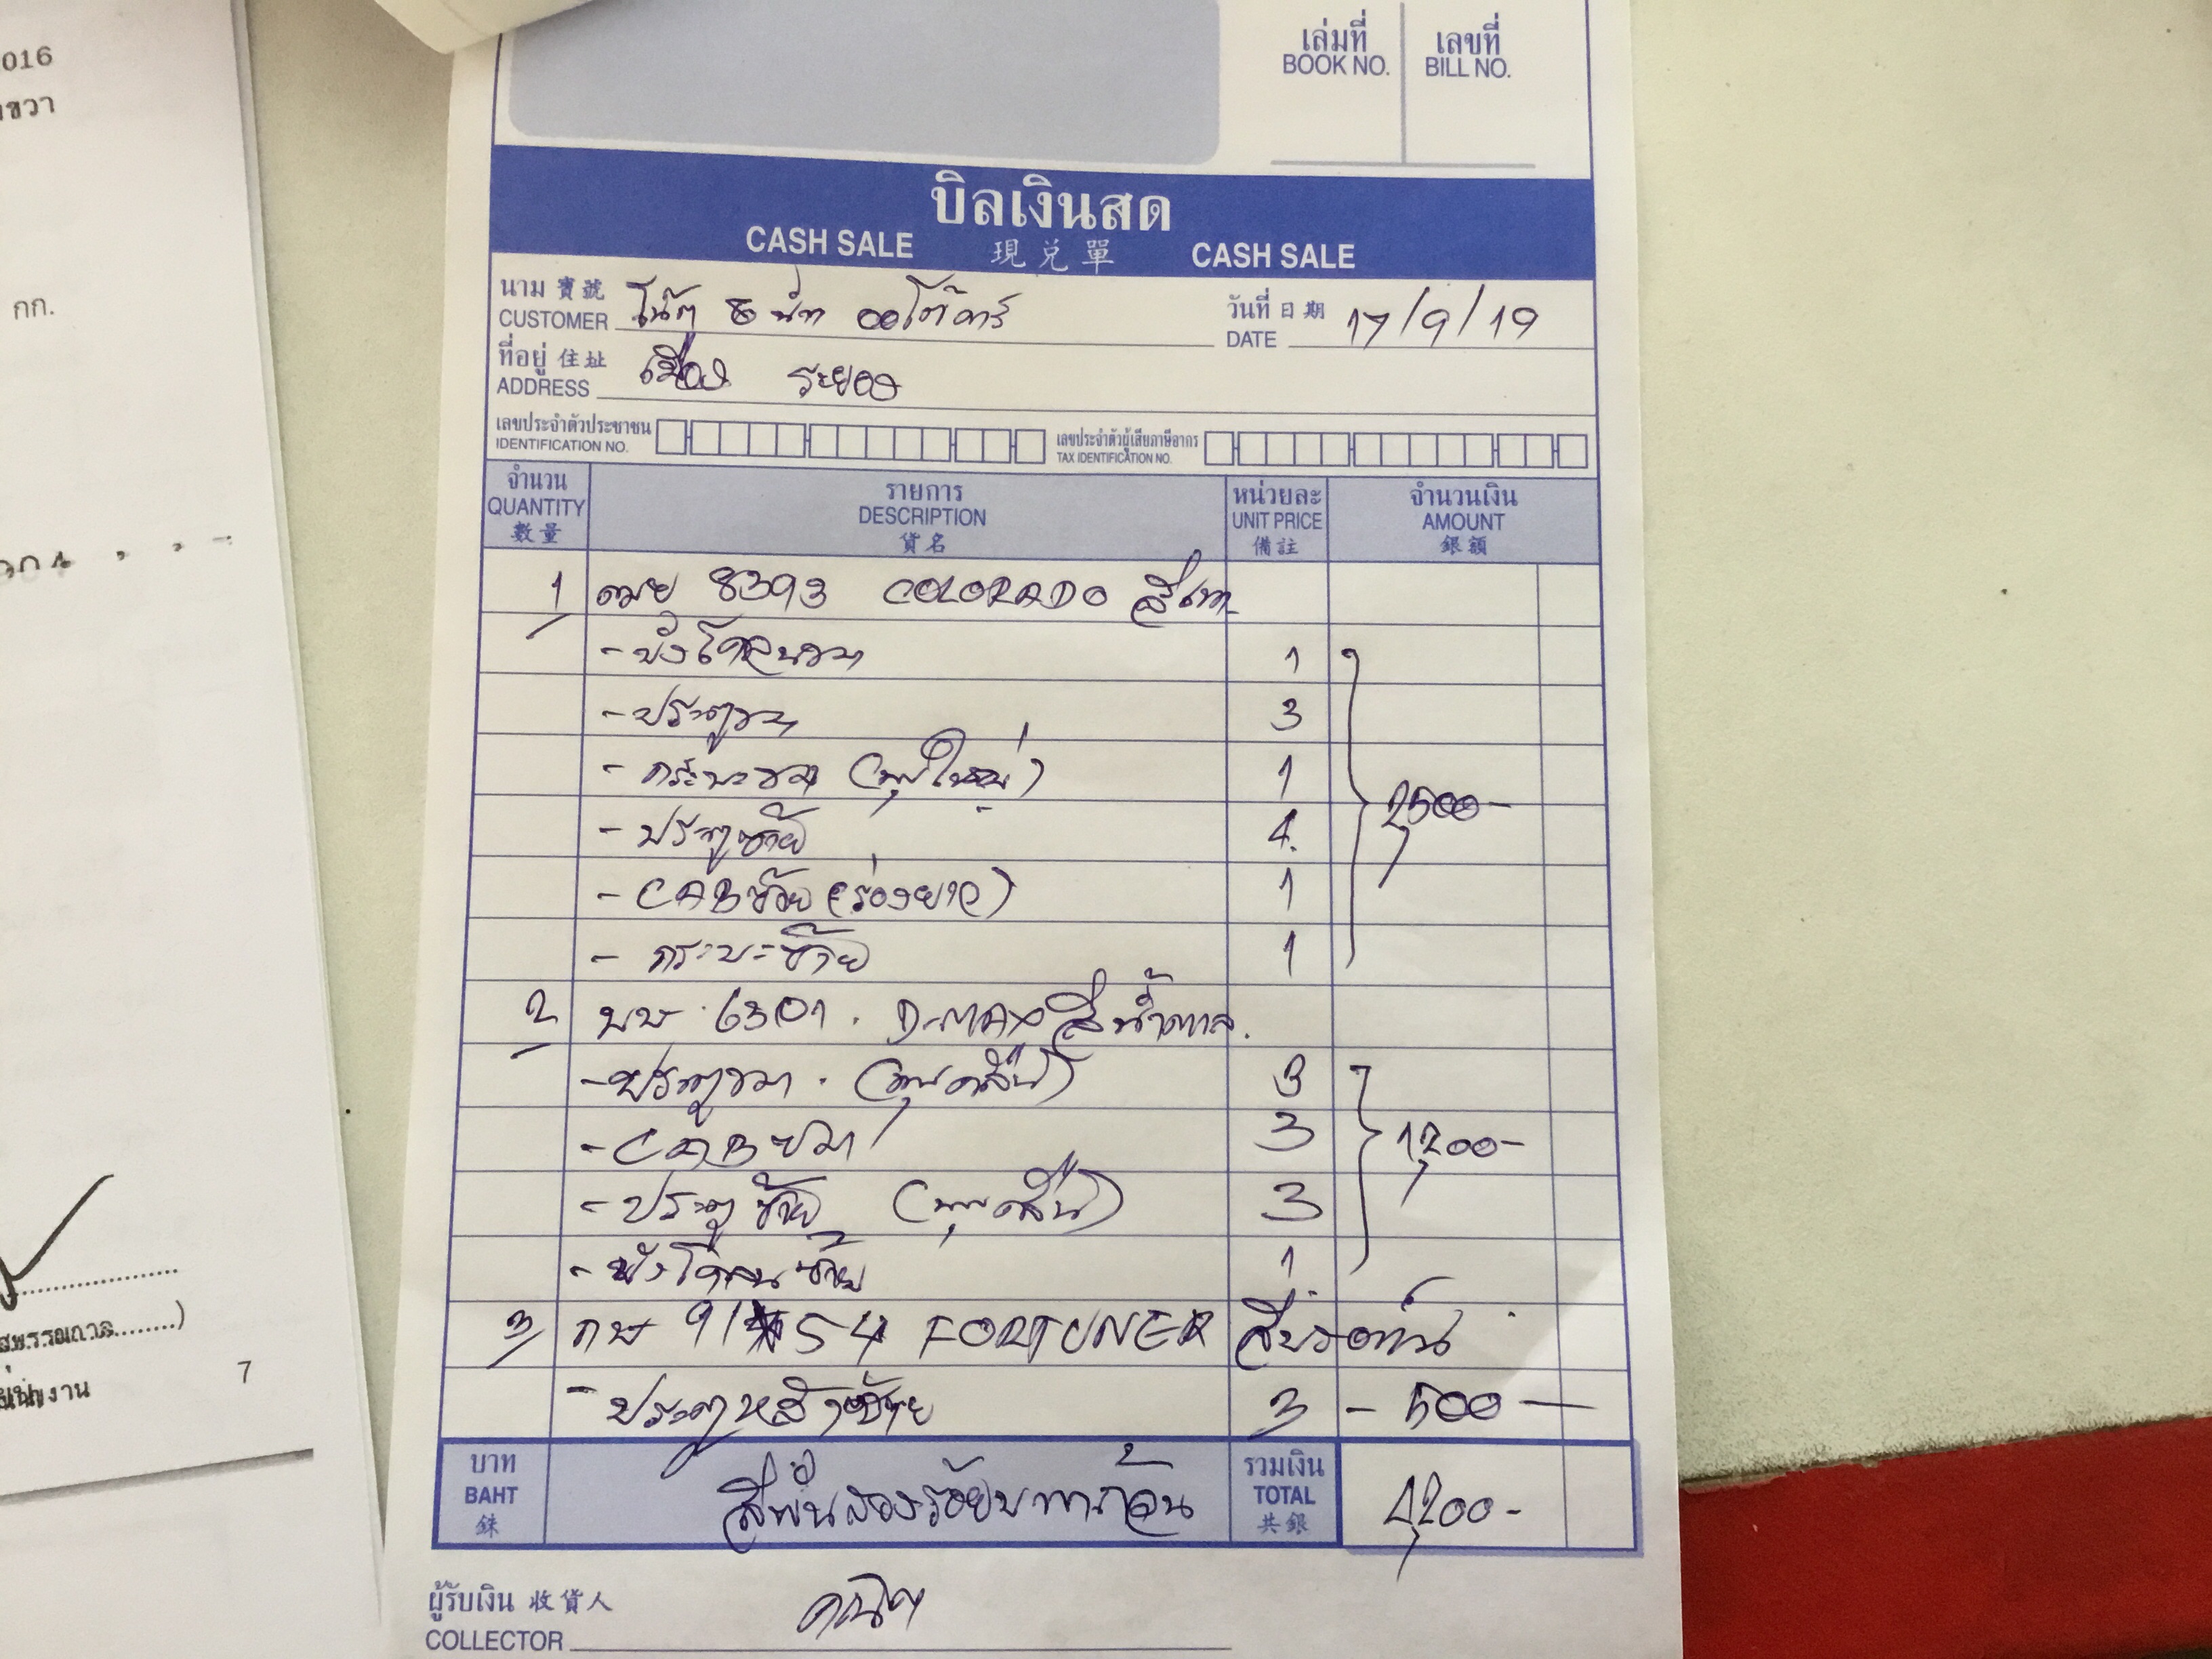 016
ขวา
กก.
เล่มที่
BOOK NO.
เลขที่
BILL NO.
บิลเงินสด
CASH SALE 現兌單 CASH SALE
นาม 寶號
CUSTOMER โน๊ต & นัท ออโต้คาร์
วันที่ 日期
DATE 17/9/19
ที่อยู่ 住址
ADDRESS เมือง ระยอง
เลขประจำตัวประชาชน
IDENTIFICATION NO.
เลขประจำตัวผู้เสียภาษีอากร
TAX IDENTIFICATION NO.
จำนวน
QUANTITY
數量
รายการ
DESCRIPTION
貨名
หน่วยละ
UNIT PRICE
備註
จำนวนเงิน
AMOUNT
銀額
1 8393 COLORADO สีเทา
- บังโคลนขวา 1
- ประตูขวา 3
- กระบะขวา (บุบใหญ่) 1
- ประตูซ้าย 4
2,500-
- CAB ซ้าย (ร่องยาว) 1
- กระบะซ้าย 1
2 บษ 6301 D-MAX สีน้ำตาล
- ประตูขวา (บุบคลื่น) 3
- CAB ขวา 3
1,200-
- ประตูซ้าย (บุบคลื่น) 3
- บังโคลนซ้าย 1
3 กษ 9154 FORTUNER สีบรอนซ์
- ประตูหลังซ้าย 3 - 500 -
บาท
BAHT
銖
สี่พันสองร้อยบาทถ้วน
รวมเงิน
TOTAL
共銀
4,200-
ผู้รับเงิน 收貨人
COLLECTOR
7